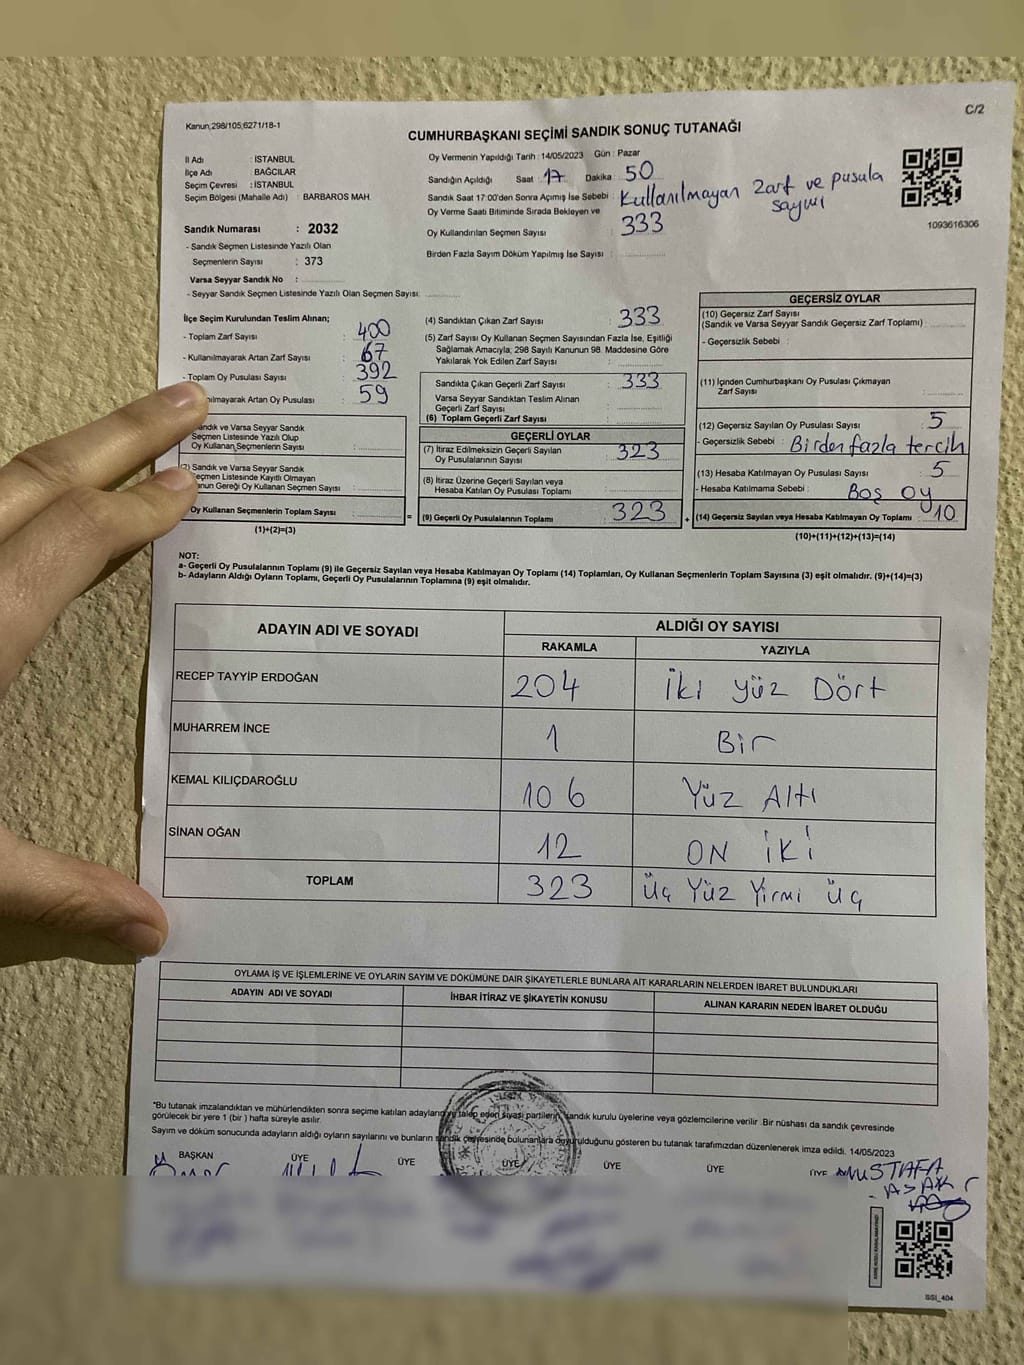 C/2
Kanun,298/105;6271/18-1
CUMHURBAŞKANI SEÇİMİ SANDIK SONUÇ TUTANAĞI
İl Adı : İSTANBUL
İlçe Adı : BAĞCILAR
Seçim Çevresi : İSTANBUL
Seçim Bölgesi (Mahalle Adı) : BARBAROS MAH.
Sandık Numarası : 2032
- Sandık Seçmen Listesinde Yazılı Olan
Seçmenlerin Sayısı : 373
Varsa Seyyar Sandık No :
- Seyyar Sandık Seçmen Listesinde Yazılı Olan Seçmen Sayısı:
Oy Vermenin Yapıldığı Tarih : 14/05/2023 Gün : Pazar
Sandığın Açıldığı Saat : 17 Dakika : 50
Sandık Saat 17:00'den Sonra Açımış İse Sebebi : Kullanılmayan zarf ve pusula sayımı
Oy Verme Saati Bitiminde Sırada Bekleyen ve
Oy Kullandırılan Seçmen Sayısı : 333
Birden Fazla Sayım Döküm Yapılmış İse Sayısı :
1093616306
İlçe Seçim Kurulundan Teslim Alınan;
- Toplam Zarf Sayısı : 400
- Kullanılmayarak Artan Zarf Sayısı : 67
- Toplam Oy Pusulası Sayısı : 392
Artan Oy Pusulası : 59
Sandık ve Varsa Seyyar Sandık
Seçmen Listesinde Yazılı Olup
Oy Kullanan Seçmenlerin Sayısı :
(2) Sandık ve Varsa Seyyar Sandık
Seçmen Listesinde Kayıtlı Olmayan
Gereği Oy Kullanan Seçmen Sayısı :
Oy Kullanan Seçmenlerin Toplam Sayısı :
(1)+(2)=(3)
(4) Sandıktan Çıkan Zarf Sayısı : 333
(5) Zarf Sayısı Oy Kullanan Seçmen Sayısından Fazla İse, Eşitliği
Sağlamak Amacıyla; 298 Sayılı Kanunun 98. Maddesine Göre
Yakılarak Yok Edilen Zarf Sayısı :
Sandıkta Çıkan Geçerli Zarf Sayısı : 333
Varsa Seyyar Sandıktan Teslim Alınan
Geçerli Zarf Sayısı :
(6) Toplam Geçerli Zarf Sayısı :
GEÇERLİ OYLAR
(7) İtiraz Edilmeksizin Geçerli Sayılan
Oy Pusulalarının Sayısı : 323
(8) İtiraz Üzerine Geçerli Sayılan veya
Hesaba Katılan Oy Pusulası Toplamı :
= (9) Geçerli Oy Pusulalarının Toplamı : 323 +
GEÇERSİZ OYLAR
(10) Geçersiz Zarf Sayısı
(Sandık ve Varsa Seyyar Sandık Geçersiz Zarf Toplamı) :
- Geçersizlik Sebebi :
(11) İçinden Cumhurbaşkanı Oy Pusulası Çıkmayan
Zarf Sayısı :
(12) Geçersiz Sayılan Oy Pusulası Sayısı : 5
- Geçersizlik Sebebi : Birden fazla tercih
(13) Hesaba Katılmayan Oy Pusulası Sayısı : 5
- Hesaba Katılmama Sebebi : Boş oy
(14) Geçersiz Sayılan veya Hesaba Katılmayan Oy Toplamı : 10
(10)+(11)+(12)+(13)=(14)
NOT:
a- Geçerli Oy Pusulalarının Toplamı (9) ile Geçersiz Sayılan veya Hesaba Katılmayan Oy Toplamı (14) Toplamları, Oy Kullanan Seçmenlerin Toplam Sayısına (3) eşit olmalıdır. (9)+(14)=(3)
b- Adayların Aldığı Oyların Toplamı, Geçerli Oy Pusulalarının Toplamına (9) eşit olmalıdır.
ADAYIN ADI VE SOYADI ALDIĞI OY SAYISI
RAKAMLA YAZIYLA
RECEP TAYYİP ERDOĞAN 204 İki yüz Dört
MUHARREM İNCE 1 Bir
KEMAL KILIÇDAROĞLU 106 Yüz Altı
SİNAN OĞAN 12 ON İKİ
TOPLAM 323 Üç Yüz Yirmi üç
OYLAMA İŞ VE İŞLEMLERİNE VE OYLARIN SAYIM VE DÖKÜMÜNE DAİR ŞİKAYETLERLE BUNLARA AİT KARARLARIN NELERDEN İBARET BULUNDUKLARI
ADAYIN ADI VE SOYADI İHBAR İTİRAZ VE ŞİKAYETİN KONUSU ALINAN KARARIN NEDEN İBARET OLDUĞU
*Bu tutanak imzalandıktan ve mühürlendikten sonra seçime katılan adaylarla ve talep eden siyasi partilerin, sandık kurulu üyelerine veya gözlemcilerine verilir .Bir nüshası da sandık çevresinde
görülecek bir yere 1 (bir ) hafta süreyle asılır.
Sayım ve döküm sonucunda adayların aldığı oyların sayılarını ve bunların sandık çevresinde bulunanlara duyurulduğunu gösteren bu tutanak tarafımızdan düzenlenerek imza edildi. 14/05/2023
BAŞKAN ÜYE ÜYE ÜYE ÜYE ÜYE ÜYE
MUSTAFA
SSI_404